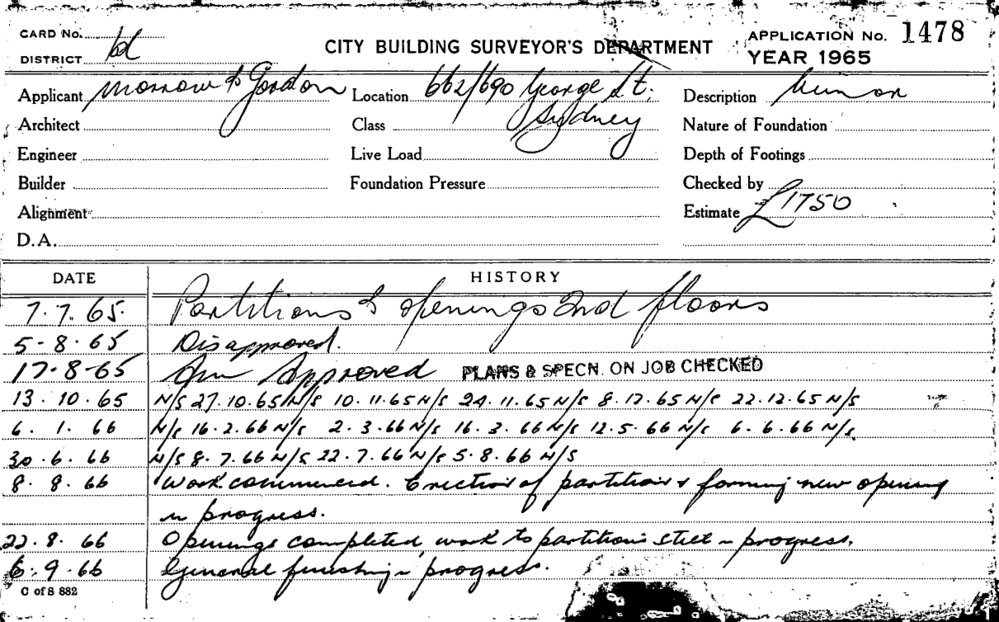 CARD No. bd
DISTRICT
CITY BUILDING SURVEYOR'S DEPARTMENT
APPLICATION No. 1478
YEAR 1965
Applicant Morrow & Gordon Location 662/690 George St. Description Minor
Architect Class Sydney Nature of Foundation
Engineer Live Load Depth of Footings
Builder Foundation Pressure Checked by
Alignment Estimate £1750
D.A.
DATE HISTORY
7.7.65. Partitions & openings 2nd floors
5-8-65 Disapproved.
17-8-65 Approved PLANS & SPECN. ON JOB CHECKED
13.10.65 N/S 27.10.65 N/S 10.11.65 N/S 24.11.65 N/S 8.12.65 N/S 22.12.65 N/S
6.1.66 N/S 16.2.66 N/S 2.3.66 N/S 16.3.66 N/S 12.5.66 N/S 6.6.66 N/S.
30.6.66 N/S 8.7.66 N/S 22.7.66 N/S 5.8.66 N/S
8.8.66 Work commenced. Erection of partitions & forming new opening
in progress.
22.8.66 Openings completed, work to partitions still in progress.
6.9.66 General finishing in progress.
C of S 882